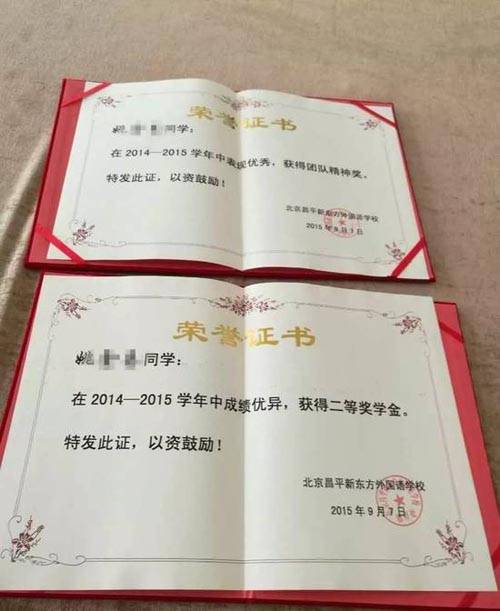 荣誉证书
姚 同学：
在 2014—2015 学年中表现优秀，获得团队精神奖。
特发此证，以资鼓励！
北京昌平新东方外国语学校
2015 年 9 月 7 日
荣誉证书
姚 同学：
在 2014—2015 学年中成绩优异，获得二等奖学金。
特发此证，以资鼓励！
北京昌平新东方外国语学校
2015 年 9 月 7 日